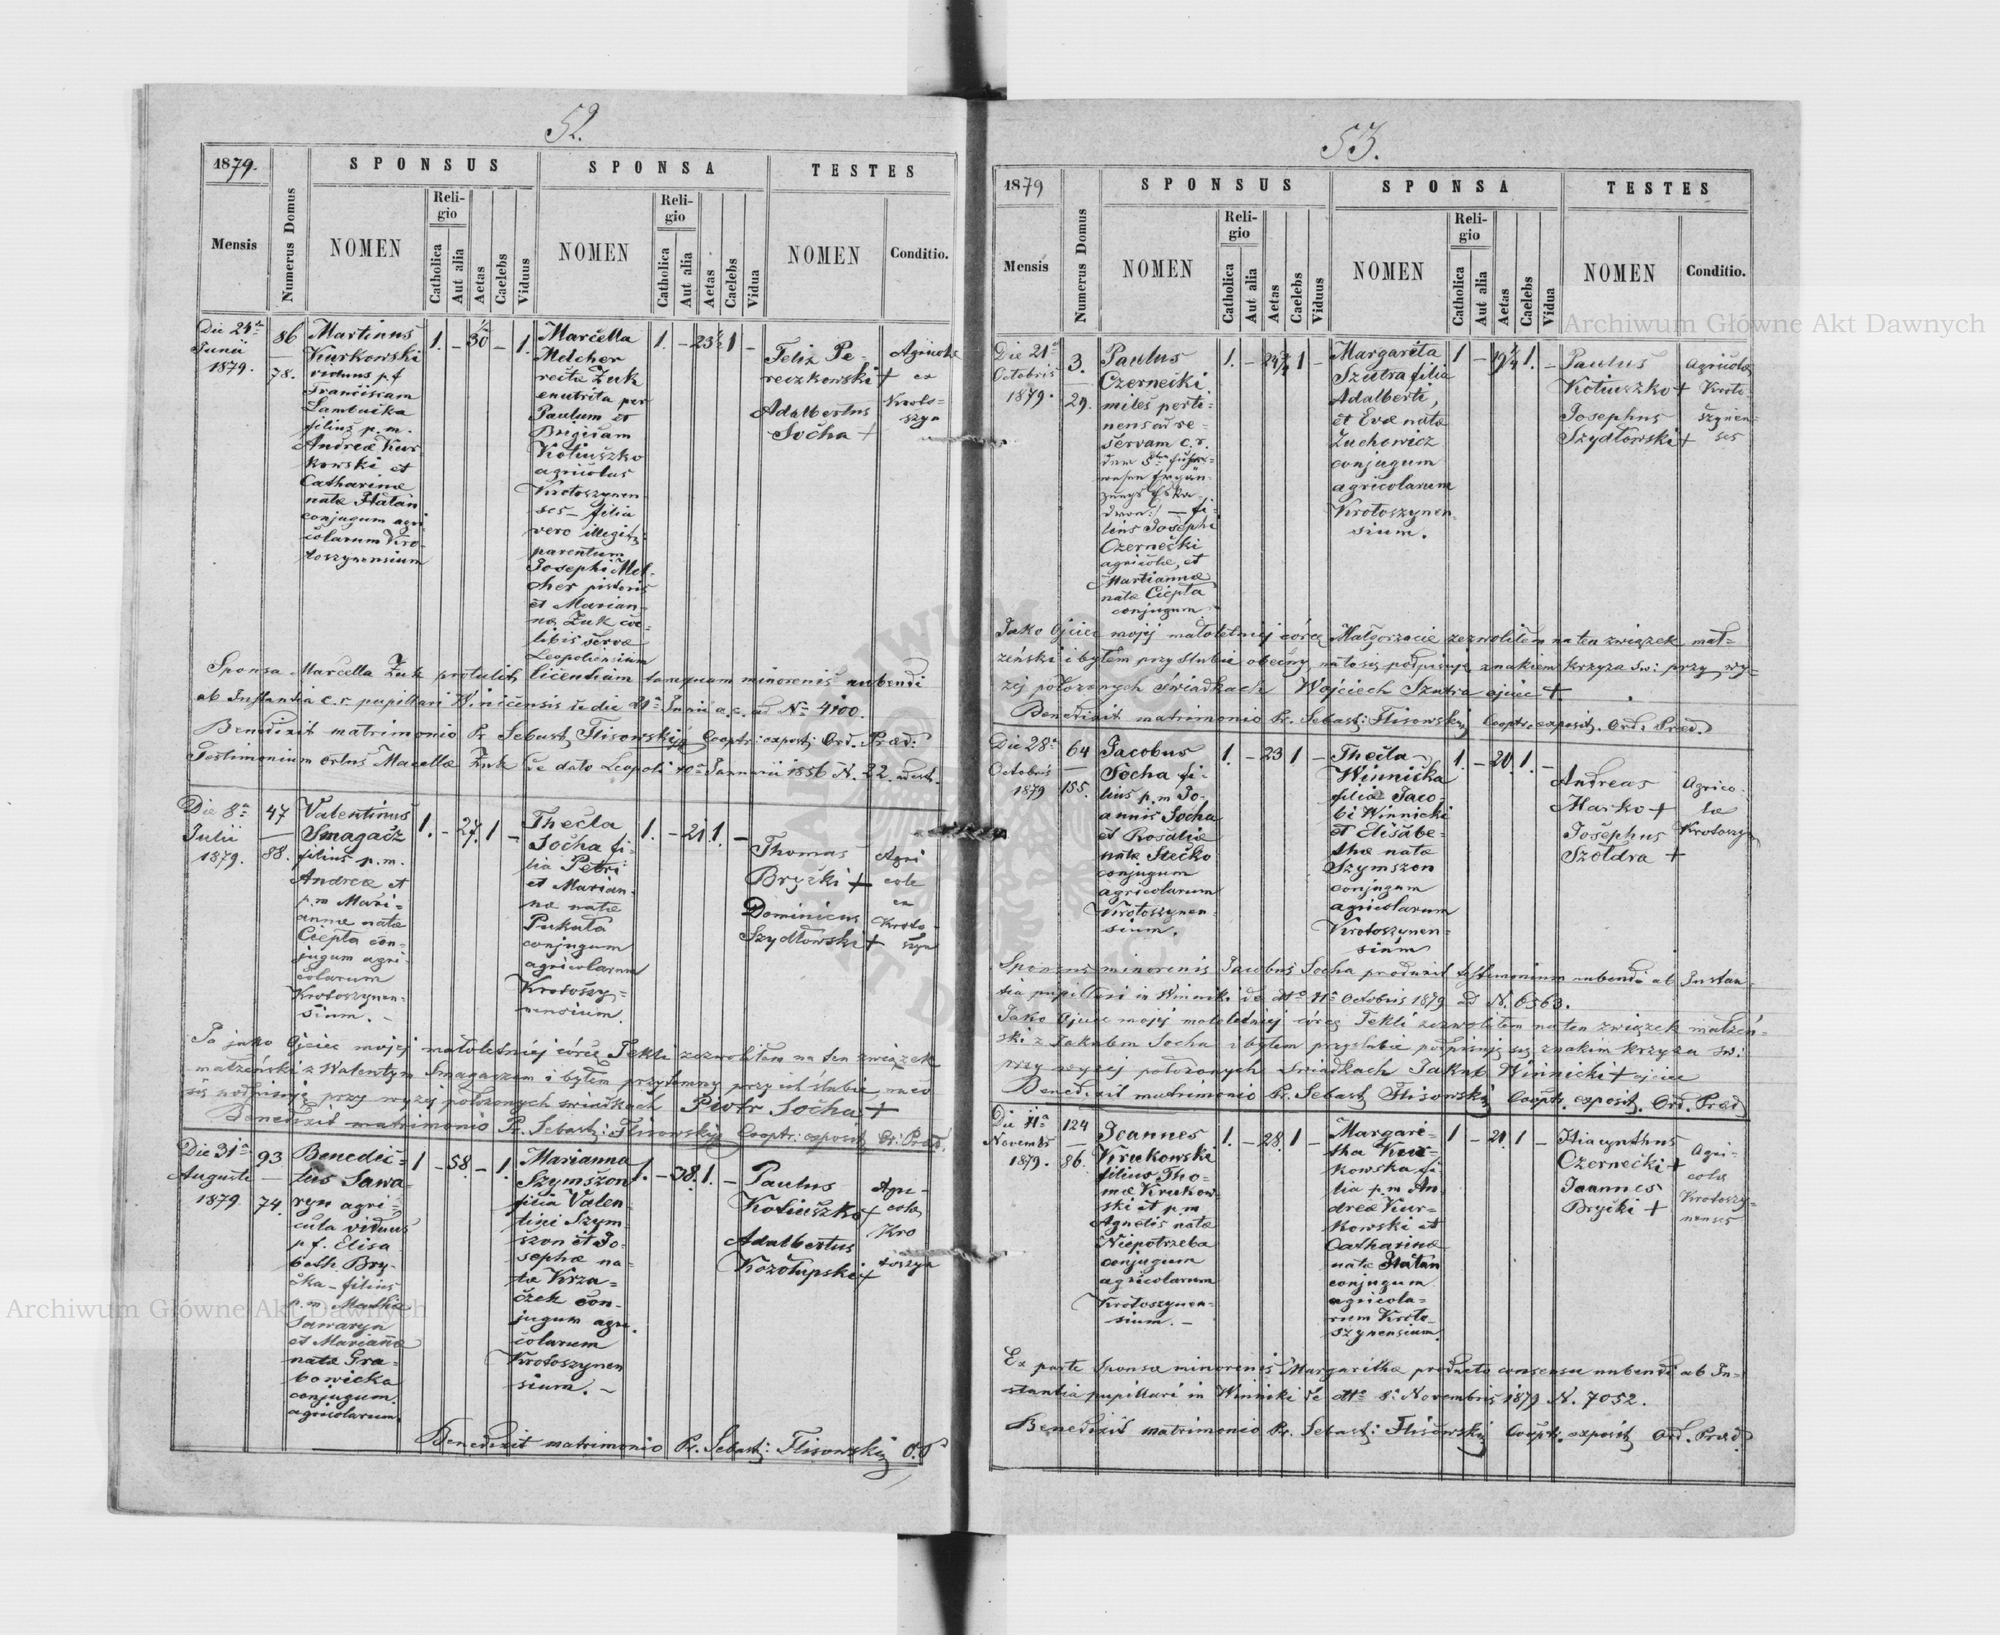 52.
1879.
SPONSUS
SPONSA
TESTES
Mensis
Numerus Domus
NOMEN
Religio
Catholica
Aut alia
Aetas
Caelebs
Viduus
NOMEN
Religio
Catholica
Aut alia
Aetas
Caelebs
Vidua
NOMEN
Conditio.
Die 24ta
Junii
1879.
86
78.
Martinus
Kurkowski
viduus p. f.
Franciscam
filius p. m.
Andreæ Kur-
kowski et
Catharinæ
natæ Hałan
conjugum agri-
colarum Kro-
toszynensium
1. - 50 - 1.
Marcella
Melcher
recte Żuk
enutrita per
Paulum et
Brigidam
Kotiuszko
agricolas
Krotoszynen-
ses - filia
vero illegit:
parentum
Josephi Mel-
cher pistoris
et Marian-
næ Żuk cœ-
libis servæ
Leopoliensium
1. - 23½ 1 -
Felix Pe-
reczkowski +
Adalbertus
Socha +
Agricolæ
ex
Kroto-
szyn
Sponsa Marcella Żuk protulit licentiam tamquam minorenis nubendi
ab Instantia c. r. pupillari Winicensis de die 21a Junii a. c. ad No 4100.
Benedixit matrimonio Pr. Sebast: Flisowski Cooptr: exposit: Ord. Præd:
Testimonium ortus Marcellæ Żuk de dato Leopoli 10a Januarii 1856 N. 22.
Die 8a
Julii
1879.
47
88.
Valentinus
Smagacz
filius p. m.
Andreæ et
p. m. Mari-
annæ natæ
Ciepła con-
jugum agri-
colarum
Krotoszynen-
sium. -
1. - 27. 1 -
Thecla
Socha fi-
lia Petri
et Marian-
næ natæ
Pukała
conjugum
agricolarum
Krotoszy-
nensium.
1. - 21. 1. -
Thomas
Brycki +
Dominicus
Szydłowski +
Agri
colæ
ex
Kroto-
szyn
Ja jako Ojciec mojej małoletniej córce Tekli zezwoliłem na ten związek
małżeński z Walentym Smagaczem i byłem przytomny przy ich ślubie na co
się podpisuję przy wyżej położonych świadkach Piotr Socha +
Benedixit matrimonio Pr. Sebast: Flisowski Cooptr: exposit: Or: Præd.
Die 31a
Auguste
1879.
93
74.
Benedic-
tus Sawa-
ryn agri-
cola viduus
p. f. Elisa
beth Bry-
cka - filius
p. m. Mathiæ
Sawaryn
et Mariannæ
natæ Gra-
bowicka
conjugum
agricolarum.
1 - 58. - 1.
Marianna
Szymszon
filia Valen-
tini Szym-
szon et Jo-
sephæ na-
tæ Krza-
czek con-
jugum agri-
colarum
Krotoszynen
sium. -
1. - 38. 1. -
Paulus
Kotiuszko +
Adalbertus
Kozołupski +
Agri-
colæ
Kro
toszyn
Benedixit matrimonio Pr. Sebast: Flisowski O. P.
53.
1879
SPONSUS
SPONSA
TESTES
Mensis
Numerus Domus
NOMEN
Religio
Catholica
Aut alia
Aetas
Caelebs
Viduus
NOMEN
Religio
Catholica
Aut alia
Aetas
Caelebs
Vidua
NOMEN
Conditio.
Die 21a
Octobris
1879.
3.
29.
Paulus
Czernecki
miles perti-
nens ad re-
servam c. r.
filius Josephi
Czernecki
agricolæ, et
Mariannæ
natæ Ciepła
conjugum
1. - 1 -
Margarita
Szutra filia
Adalberti,
et Evæ natæ
Zuchowicz
conjugum
agricolarum
Krotoszynen-
sium.
1 - 19¼ 1. -
Paulus
Kotiuszko +
Josephus
Szydłowski +
Agricolæ
Kroto-
szynen-
ses
Jako Ojciec mojej małoletniej córce Małgorzacie zezwoliłem na ten związek mał-
żeński i byłem przy ślubie obecny na to się podpisuję znakiem krzyża św: przy wy-
żej położonych świadkach Wojciech Szutra ojciec +
Benedixit matrimonio Pr. Sebast: Flisowski Cooptr. exposit. Ord. Præd.
Die 28a
Octobris
1879
64
155.
Jacobus
Socha fi-
lius p. m Jo-
annis Socha
et Rosaliæ
natæ Stečko
conjugum
agricolarum
Krotoszynen-
sium.
1. - 23 1 -
Thecla
Winnicka
filia Jaco-
bi Winnicki
et Elisabe-
thæ natæ
Szymszon
conjugum
agricolarum
Krotoszynen-
sium
1. - 20. 1. -
Andreas
Harko +
Josephus
Szołdra +
Agrico-
læ
Krotoszyn
Sponsus minorenis Jacobus Socha produxit testimonium nubendi ab Instan-
tia pupillari in Winniki de dto 11a Octobris 1879 ad N. 6563.
Jako Ojciec mojej małoletniej córce Tekli zezwoliłem na ten związek małżeń-
ski z Jakubem Socha i byłem przy ślubie podpisuję się znakiem krzyża św:
przy wyżej położonych świadkach Jakub Winnicki + ojciec
Benedixit matrimonio Pr. Sebast: Flisowski Cooptr. exposit. Ord. Præd
Die 11a
Novembr
1879.
124
86.
Joannes
Krukowski
filius Tho-
mæ Krukow-
ski et p. m
Agnetis natæ
Niepotrzeba
conjugum
agricolarum
Krotoszynen-
sium. -
1. - 28. 1 -
Margari-
tha Kur-
kowska fi-
lia p. m An-
dreæ Kur-
kowski et
Catharinæ
natæ Hałan
conjugum
agricola-
rum Kroto-
szynensium.
1 - 21. 1 -
Hiacynthus
Czernecki +
Joannes
Brycki +
Agri-
colæ
Krotoszy-
nenses
Ex parte Sponsæ minorenis Margarithæ producto consensu nubendi ab In-
stantia pupillari in Winniki de dto 8a Novembris 1879 N. 7052.
Benedixit matrimonio Pr. Sebast: Flisowski Cooptr. exposit Ord. Præd.
Archiwum Główne Akt Dawnych
Archiwum Główne Akt Dawnych